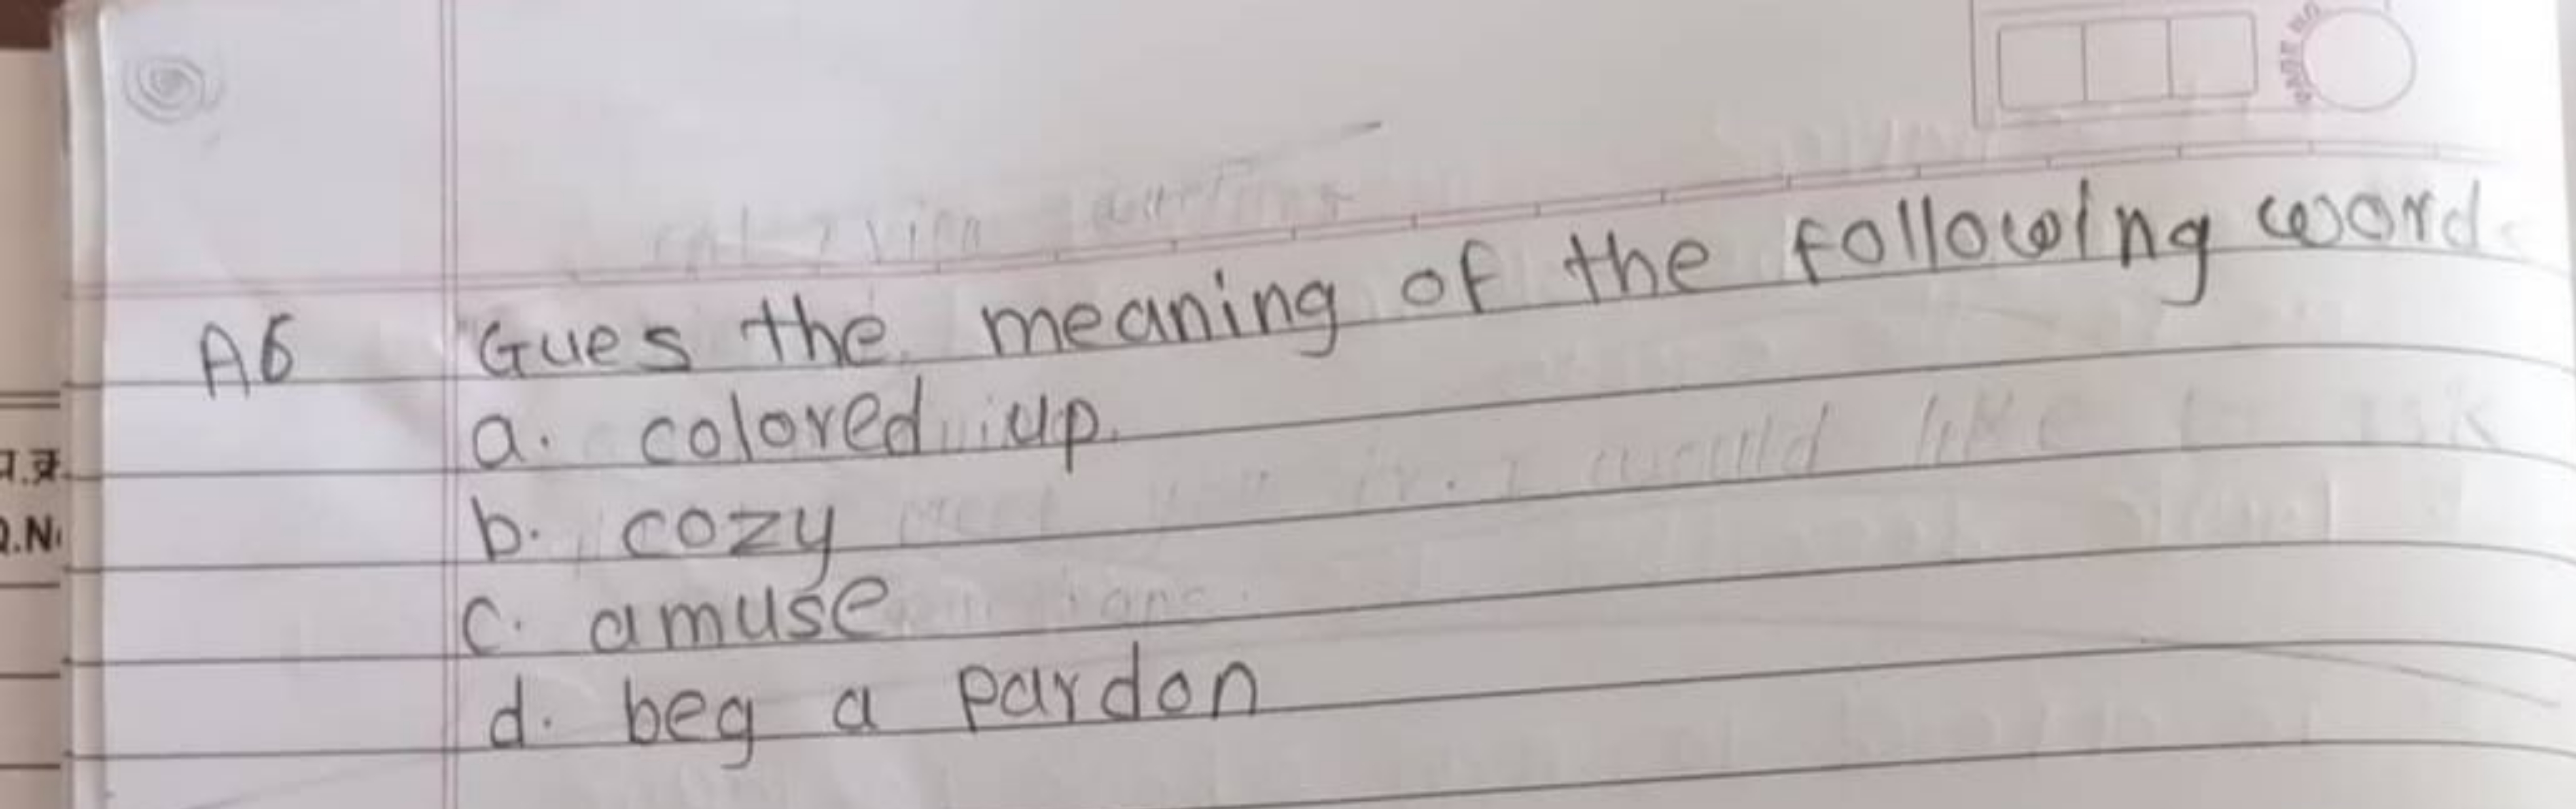 A6 Gues the meaning of the following word
a. colored up.
b. cozy
c. amuse
d. beg a pardon
प.क्र.
Q.N